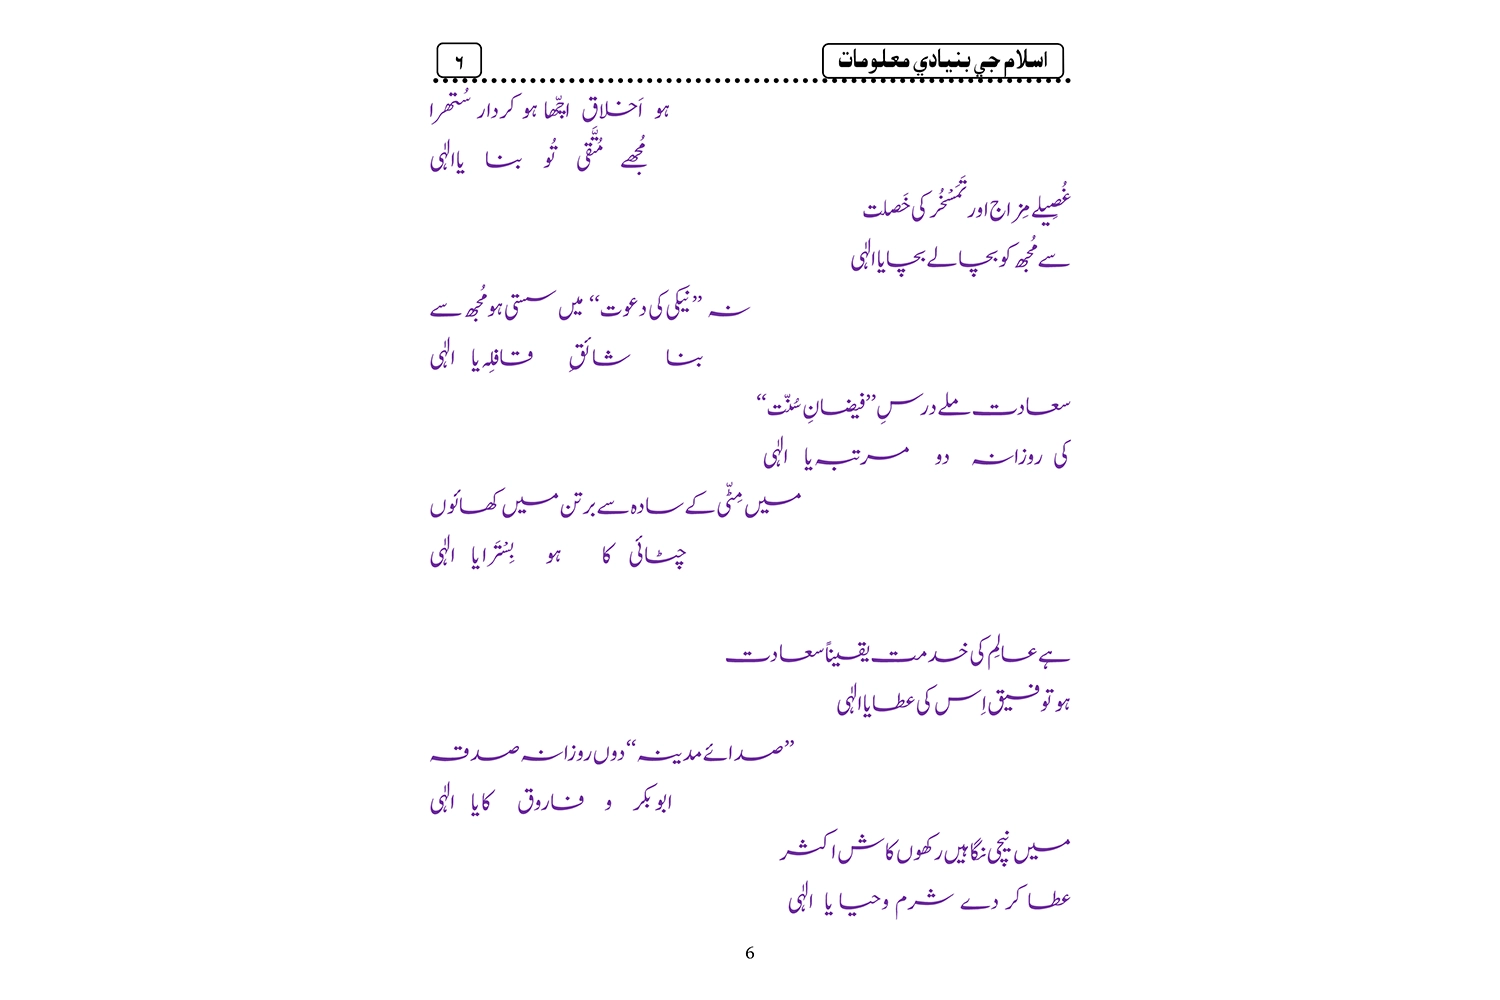 اسلام جي بنيادي معلومات
٦
ہو اَخلاق اچّھا ہو کردار سُتھرا
مُجھے مُتَّقی تُو بنا یاالٰہی
غُصِیلے مِزاج اور تَمَسْخُر کی خَصلت
سے مُجھ کو بچالے بچا یاالٰہی
نہ ”نیکی کی دعوت“ میں سستی ہو مُجھ سے
بنا شائقِ قافِلہ یا الٰہی
سعادت ملے درسِ ”فیضانِ سُنّت“
کی روزانہ دو مرتبہ یا الٰہی
میں مِٹّی کے سادہ سے برتن میں کھائوں
چٹائی کا ہو بِسْتَرا یا الٰہی
ہے عالِم کی خدمت یقیناً سعادت
ہو توفیق اِس کی عطا یاالٰہی
”صدائے مدینہ“ دوں روزانہ صدقہ
ابوبکر و فاروق کا یا الٰہی
میں نیچی نگاہیں رکھوں کاش اکثر
عطا کر دے شرم وحیا یا الٰہی
6